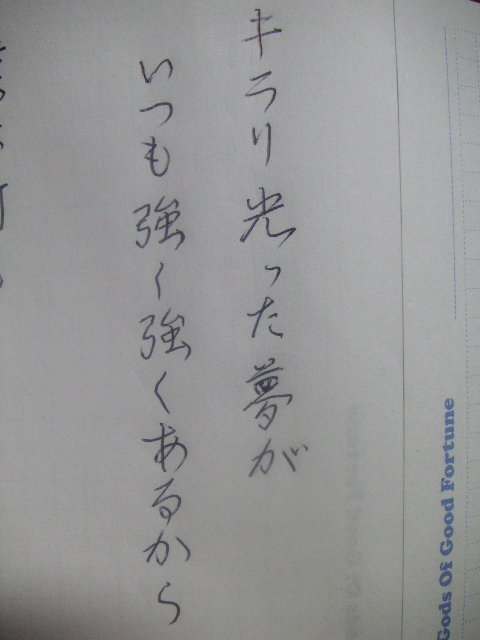 キラリ光った夢が
いつも強く強くあるから
Gods Of Good Fortune